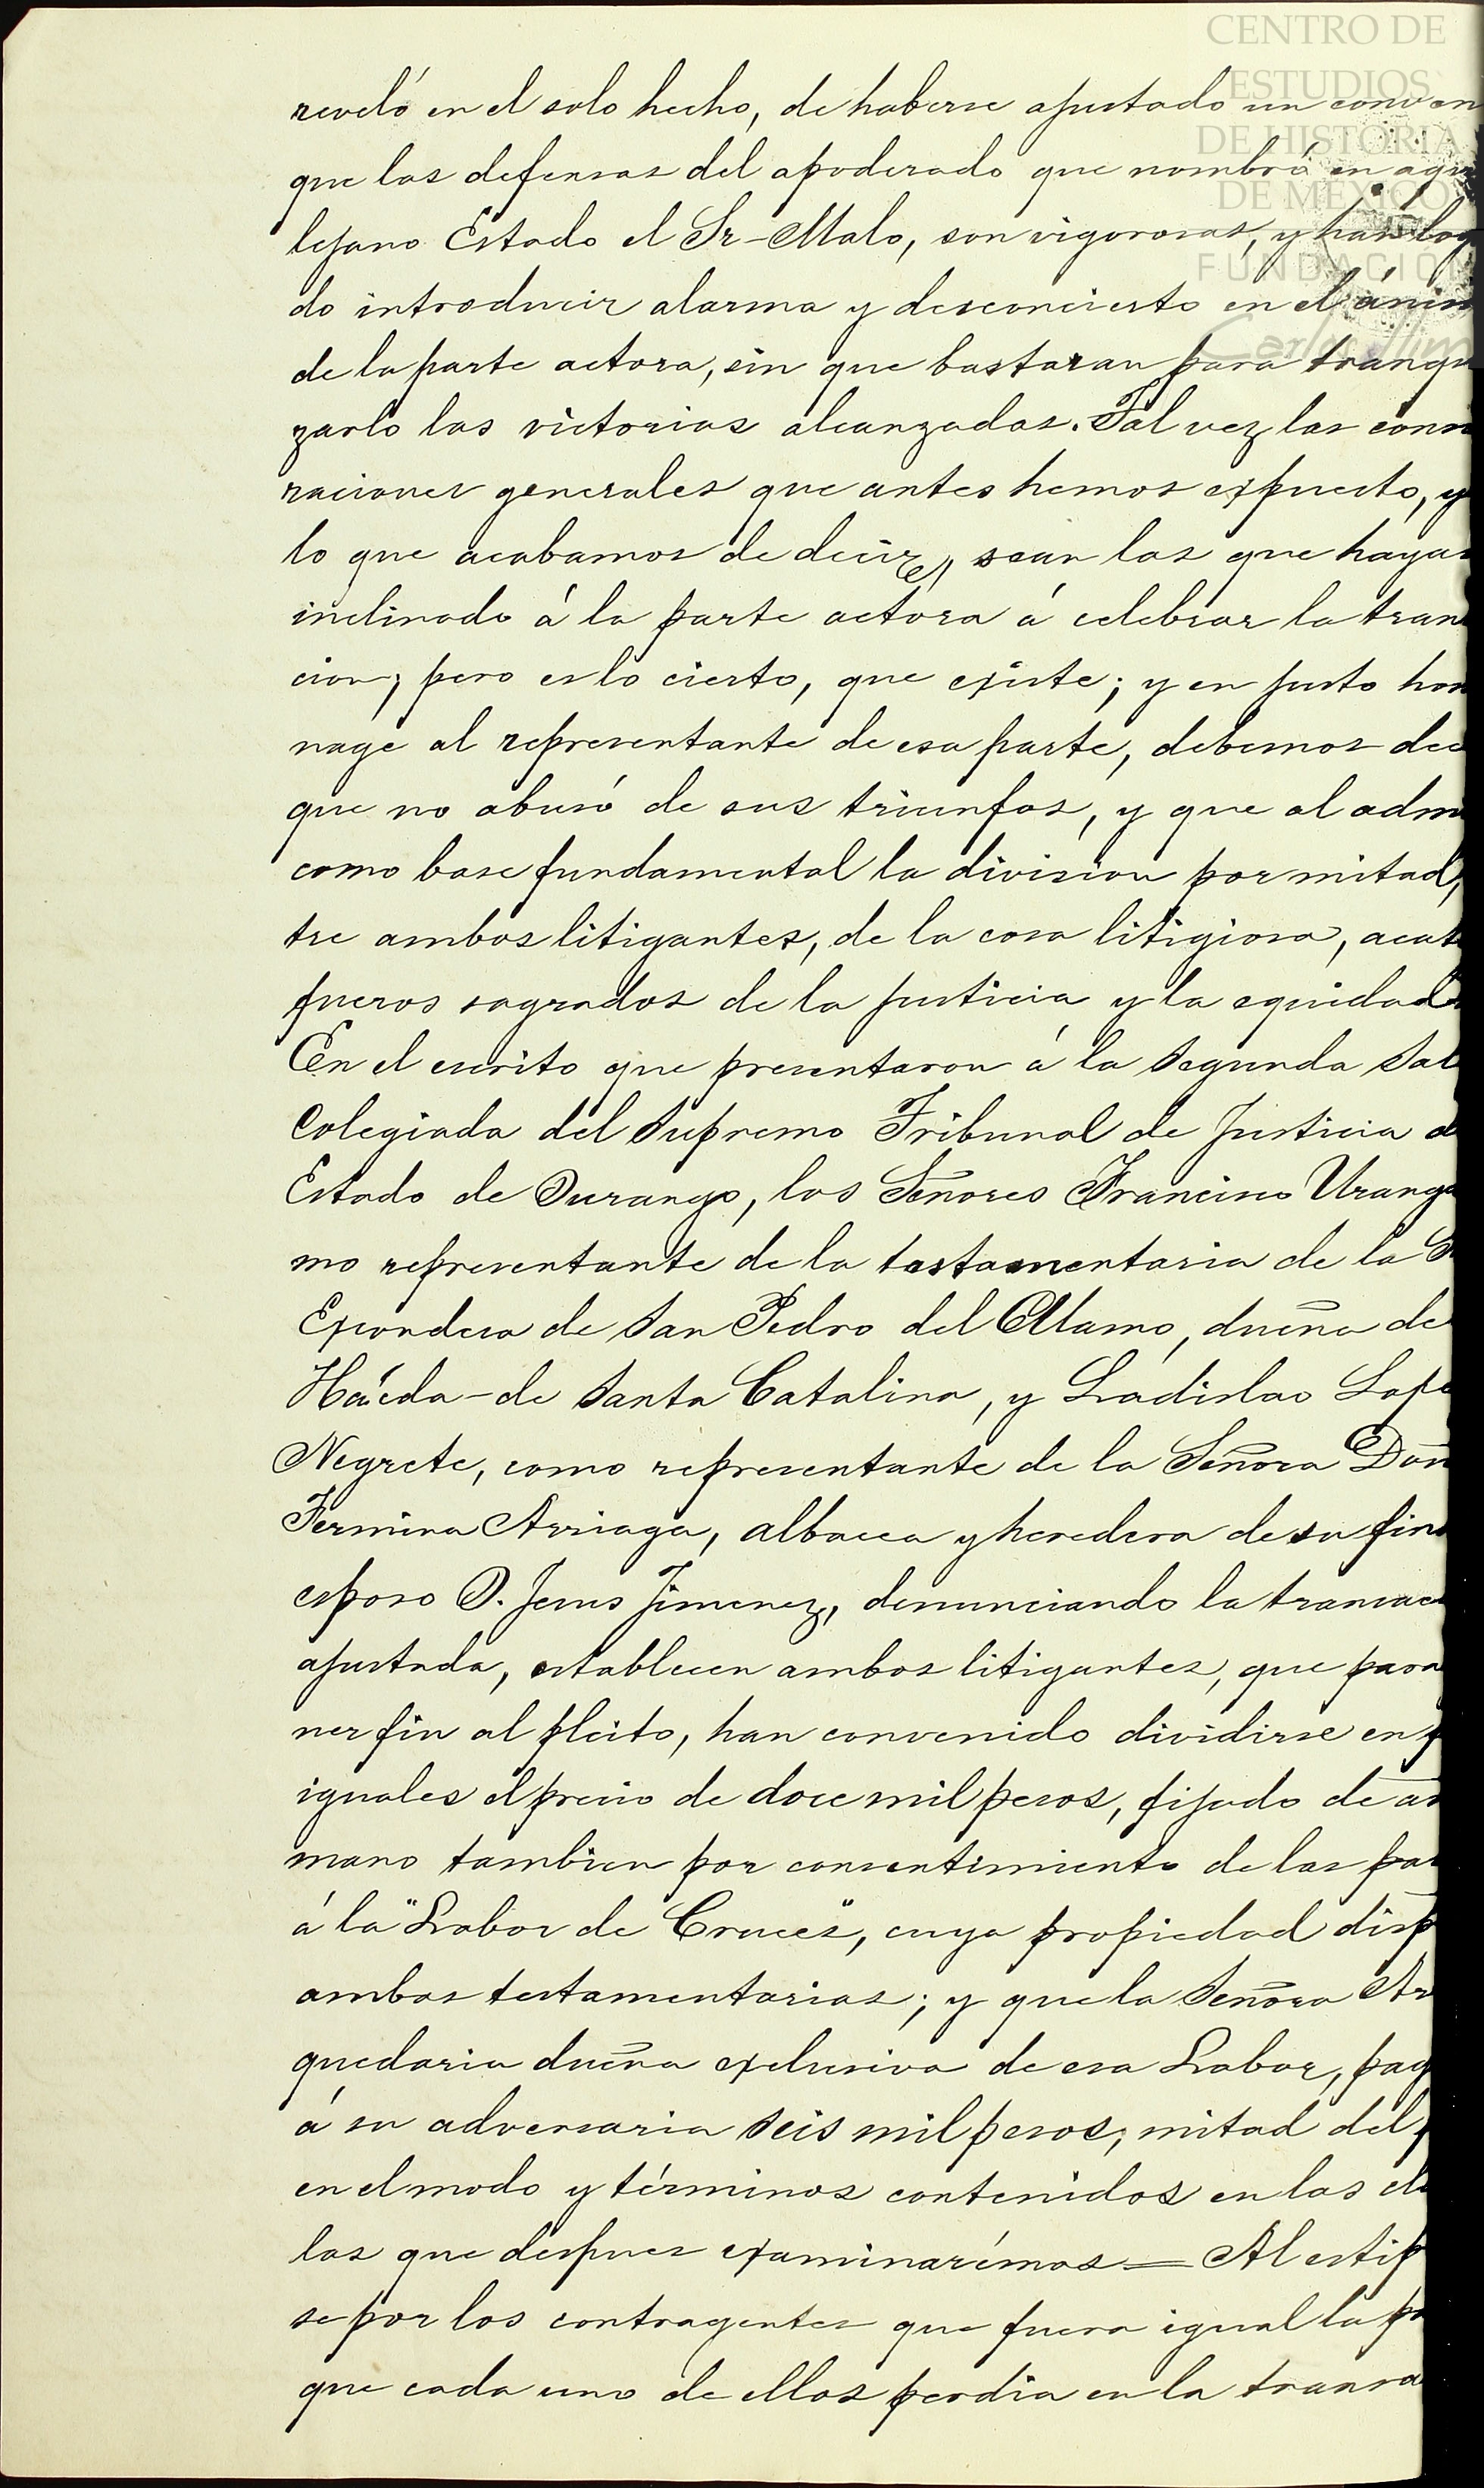 CENTRO DE
ESTUDIOS
DE HISTORIA
DE MÉXICO
FUNDACIÓN
reveló en el solo hecho, de haberse ajustado un conven
que las defensas del apoderado que nombró en aqu
lejano Estado el Sr. Malo, son vigorosas, y han log
do introducir alarma y desconcierto en el ánim
de la parte actora, sin que bastaran para tranqu
zarlo las victorias alcanzadas. Tal vez las cons
raciones generales que antes hemos expuesto, y
lo que acabamos de decir, sean las que hayan
inclinado á la parte actora á celebrar la tran
cion; pero es lo cierto, que existe; y en justo hom
nage al representante de esa parte, debemos dec
que no abusó de sus triunfos, y que al adm
como base fundamental la division por mitad,
tre ambos litigantes, de la cosa litigiosa, acat
fueros sagrados de la justicia y la equidad
En el escrito que presentaron á la Segunda Sal
Colegiada del Supremo Tribunal de Justicia d
Estado de Durango, los Señores Francisco Uranga
mo representante de la testamentaria de la
Excondesa de San Pedro del Alamo, dueña de
Hacda de Santa Catalina, y Ladislao Lope
Negrete, como representante de la Señora Doñ
Fermina Arriaga, albacea y heredera de su fin
esposo D. Jesus Jimenez, denunciando la transac
ajustada, establecen ambos litigantes, que para
ner fin al pleito, han convenido dividirse en p
iguales el precio de doce mil pesos, fijado de an
mano tambien por consentimiento de las par
á la "Labor de Cruces", cuya propiedad disp
ambas testamentarias; y que la Señora Ar
quedaria dueña exclusiva de esa Labor, pag
á su adversaria seis mil pesos, mitad del p
en el modo y términos contenidos en las cl
las que despues examinarémos = Al estip
se por los contragentes que fuera igual la po
que cada uno de ellos perdia en la transa